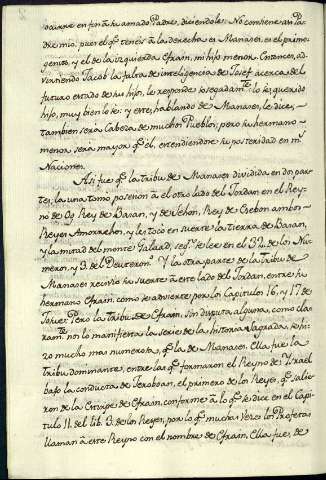 8.
ocurre en fon â su amado Padre, diciendole: No conviene así Pa-
dre mio, puer el q.e teneis â la derecha es Manases, es el primo-
genito, y el de la izquierda Efrain, mi hijo menor. Entonces, ad-
virtiendo Jacob la falta de inteligencia de Josef acerca del
futuro estado de sus hijos, le responde sosegadam.te: lo se, querido
hijo, muy bien lo se: y este, hablando de Manases, le dice,
tambien será Cabeza de muchos Pueblos; pero su hermano
menor será mayor q.e el, entendiendose su posteridad en m.s
Naciones.
Asi fue q.e la tribu de Manases dividida en dos par-
tes, la una tomo posesion â el otro lado del Jordan en el Rey-
no de Og Rey de Basan, y de Sehon, Rey de Esebon ambos
Reyes Amorreos, y le tocó en suerte la tierra de Basan,
y la mitad del monte Galaad, seg.n se lee en el 32 de los Nu-
meros, y 3. del Deuteron.o Y la otra parte de la Tribu de
Manases recivio su suerte â este lado del Jordan, entre su
hermano Efrain, como se advierte por los Capitulos 16, y 17 de
Josue. Pero la tribu de Efrain, sin disputa alguna, como cla-
ram.te nos lo manifiesta la serie de la historia sagrada, se hi-
zo mucho mas numerosa, q.e la de Manases. Ella fue la
tribu dominante, entre las q.e formaron el Reyno de Ysrael
bajo la conducta de Jeroboan, el primero de los Reyes, q.e salie-
ron de la Estirpe de Efrain, conforme â lo q.e se dice en el Capi-
tulo 11. del lib. 3. de los Reyes, por lo q.e muchas veces los Profetas
llaman â este Reyno con el nombre de Efrain. Ella fue, de